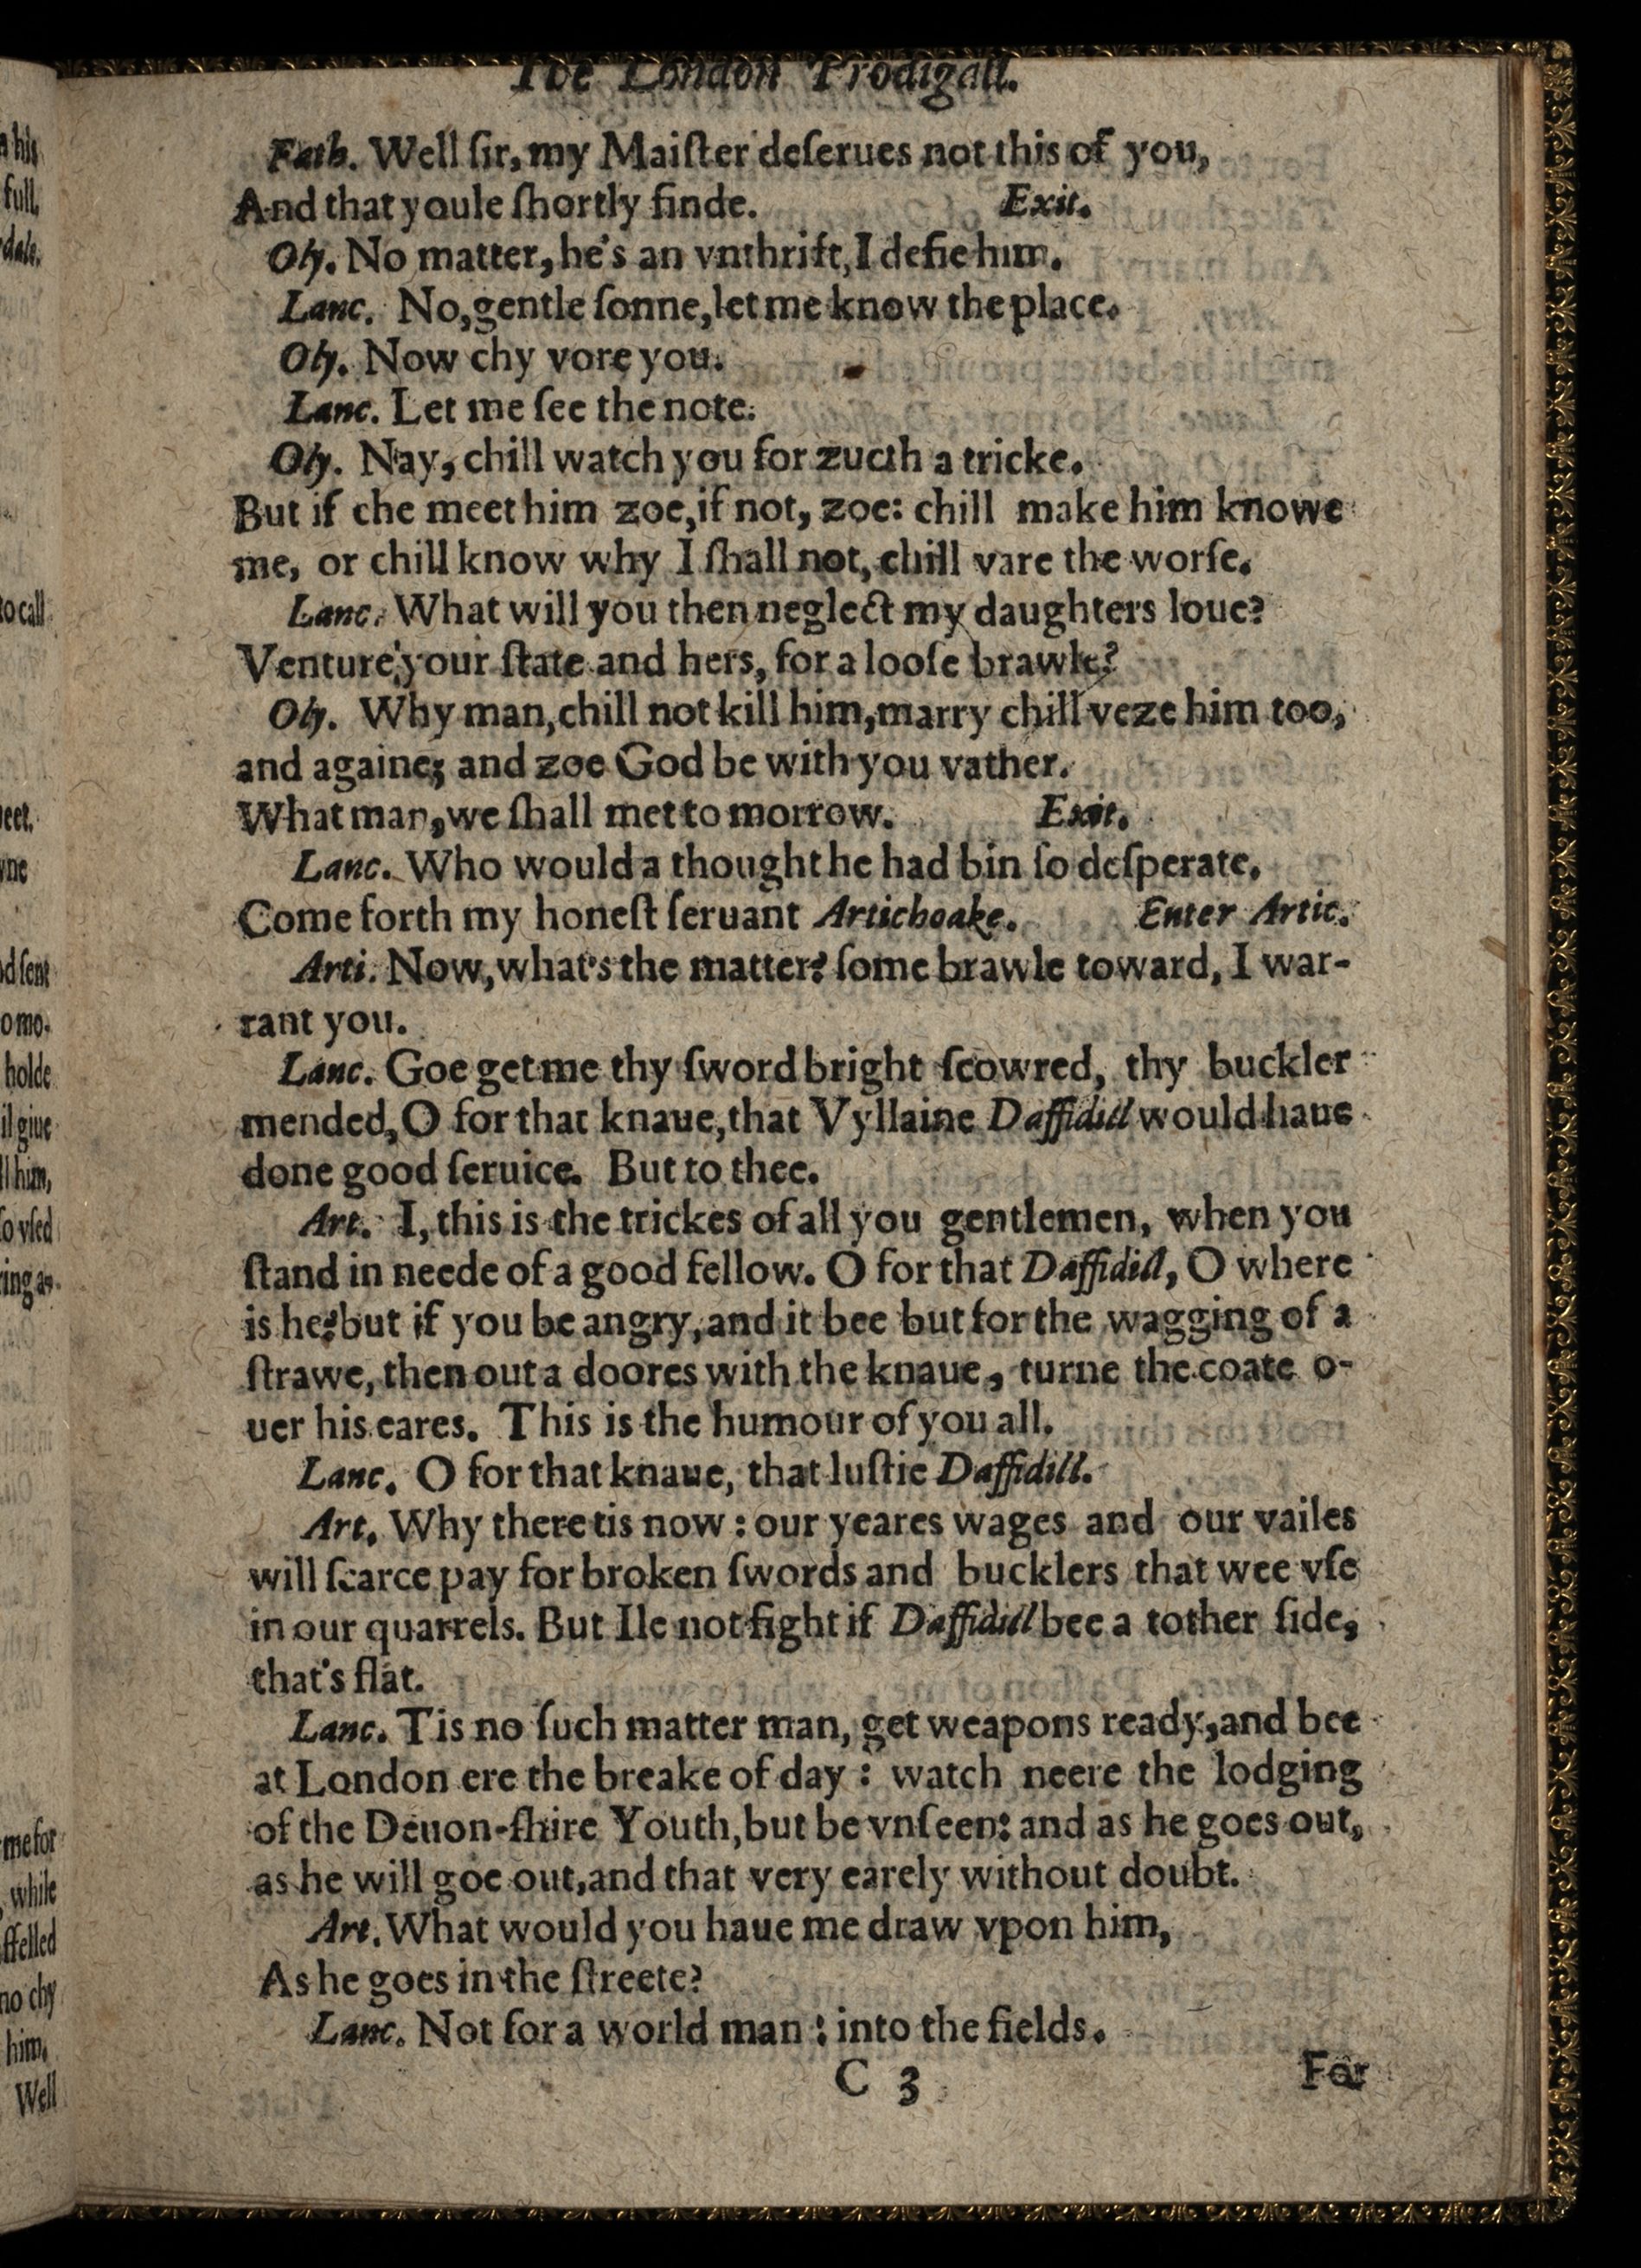 The London Prodigall.
Fath. Well ſir, my Maiſter deſerues not this of you,
And that youle ſhortly finde. Exit.
Oly. No matter, he's an vnthrift, I defie him.
Lanc. No, gentle ſonne, let me know the place.
Oly. Now chy vore you.
Lanc. Let me ſee the note.
Oly. Nay, chill watch you for zucth a tricke.
But if che meet him zoe, if not, zoe: chill make him knowe
me, or chill know why I ſhall not, chill vare the worſe.
Lanc. What will you then neglect my daughters loue?
Venture your ſtate and hers, for a looſe brawle?
Oly. Why man, chill not kill him, marry chill veze him too,
and againe; and zoe God be with you vather.
What man, we ſhall met to morrow. Exit.
Lanc. Who would a thought he had bin ſo deſperate.
Come forth my honeſt ſeruant Artichoake. Enter Artic.
Arti. Now, what's the matter? ſome brawle toward, I war-
rant you.
Lanc. Goe get me thy ſword bright ſcowred, thy buckler
mended, O for that knaue, that Vyllaine Daffidill would haue
done good ſeruice. But to thee.
Art. I, this is the trickes of all you gentlemen, when you
ſtand in neede of a good fellow. O for that Daffidill, O where
is he? but if you be angry, and it bee but for the wagging of a
ſtrawe, then out a doores with the knaue, turne the coate o-
uer his eares. This is the humour of you all.
Lanc. O for that knaue, that luſtie Daffidill.
Art. Why there tis now: our yeares wages and our vailes
will ſcarce pay for broken ſwords and bucklers that wee vſe
in our quarrels. But Ile not fight if Daffidill bee a tother ſide,
that's flat.
Lanc. Tis no ſuch matter man, get weapons ready, and bee
at London ere the breake of day: watch neere the lodging
of the Deuon-ſhire Youth, but be vnſeen: and as he goes out,
as he will goe out, and that very earely without doubt.
Art. What would you haue me draw vpon him,
As he goes in the ſtreete?
Lanc. Not for a world man: into the fields.
C 3 For